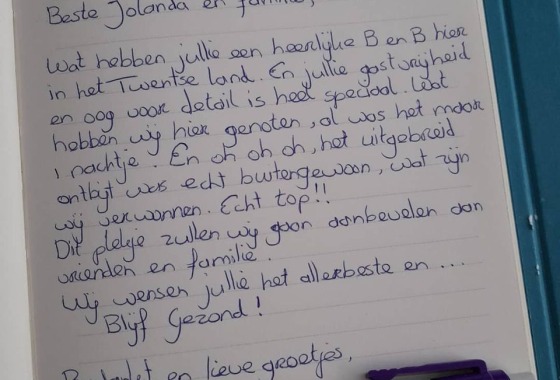 Beste Jolanda en familie,
Wat hebben jullie een heerlijke B en B hier
in het Twentse land. En jullie gastvrijheid
en oog voor detail is heel speciaal. Wat
hebben wij hier genoten, al was het maar
1 nachtje. En oh oh oh, het uitgebreid
ontbijt was echt buitengewoon, wat zijn
wij verwonnen. Echt top!!
Dit plekje zullen wij gaan aanbevelen aan
vrienden en familie.
Wij wensen jullie het allerbeste en ...
Blijf Gezond!
en lieve groetjes,